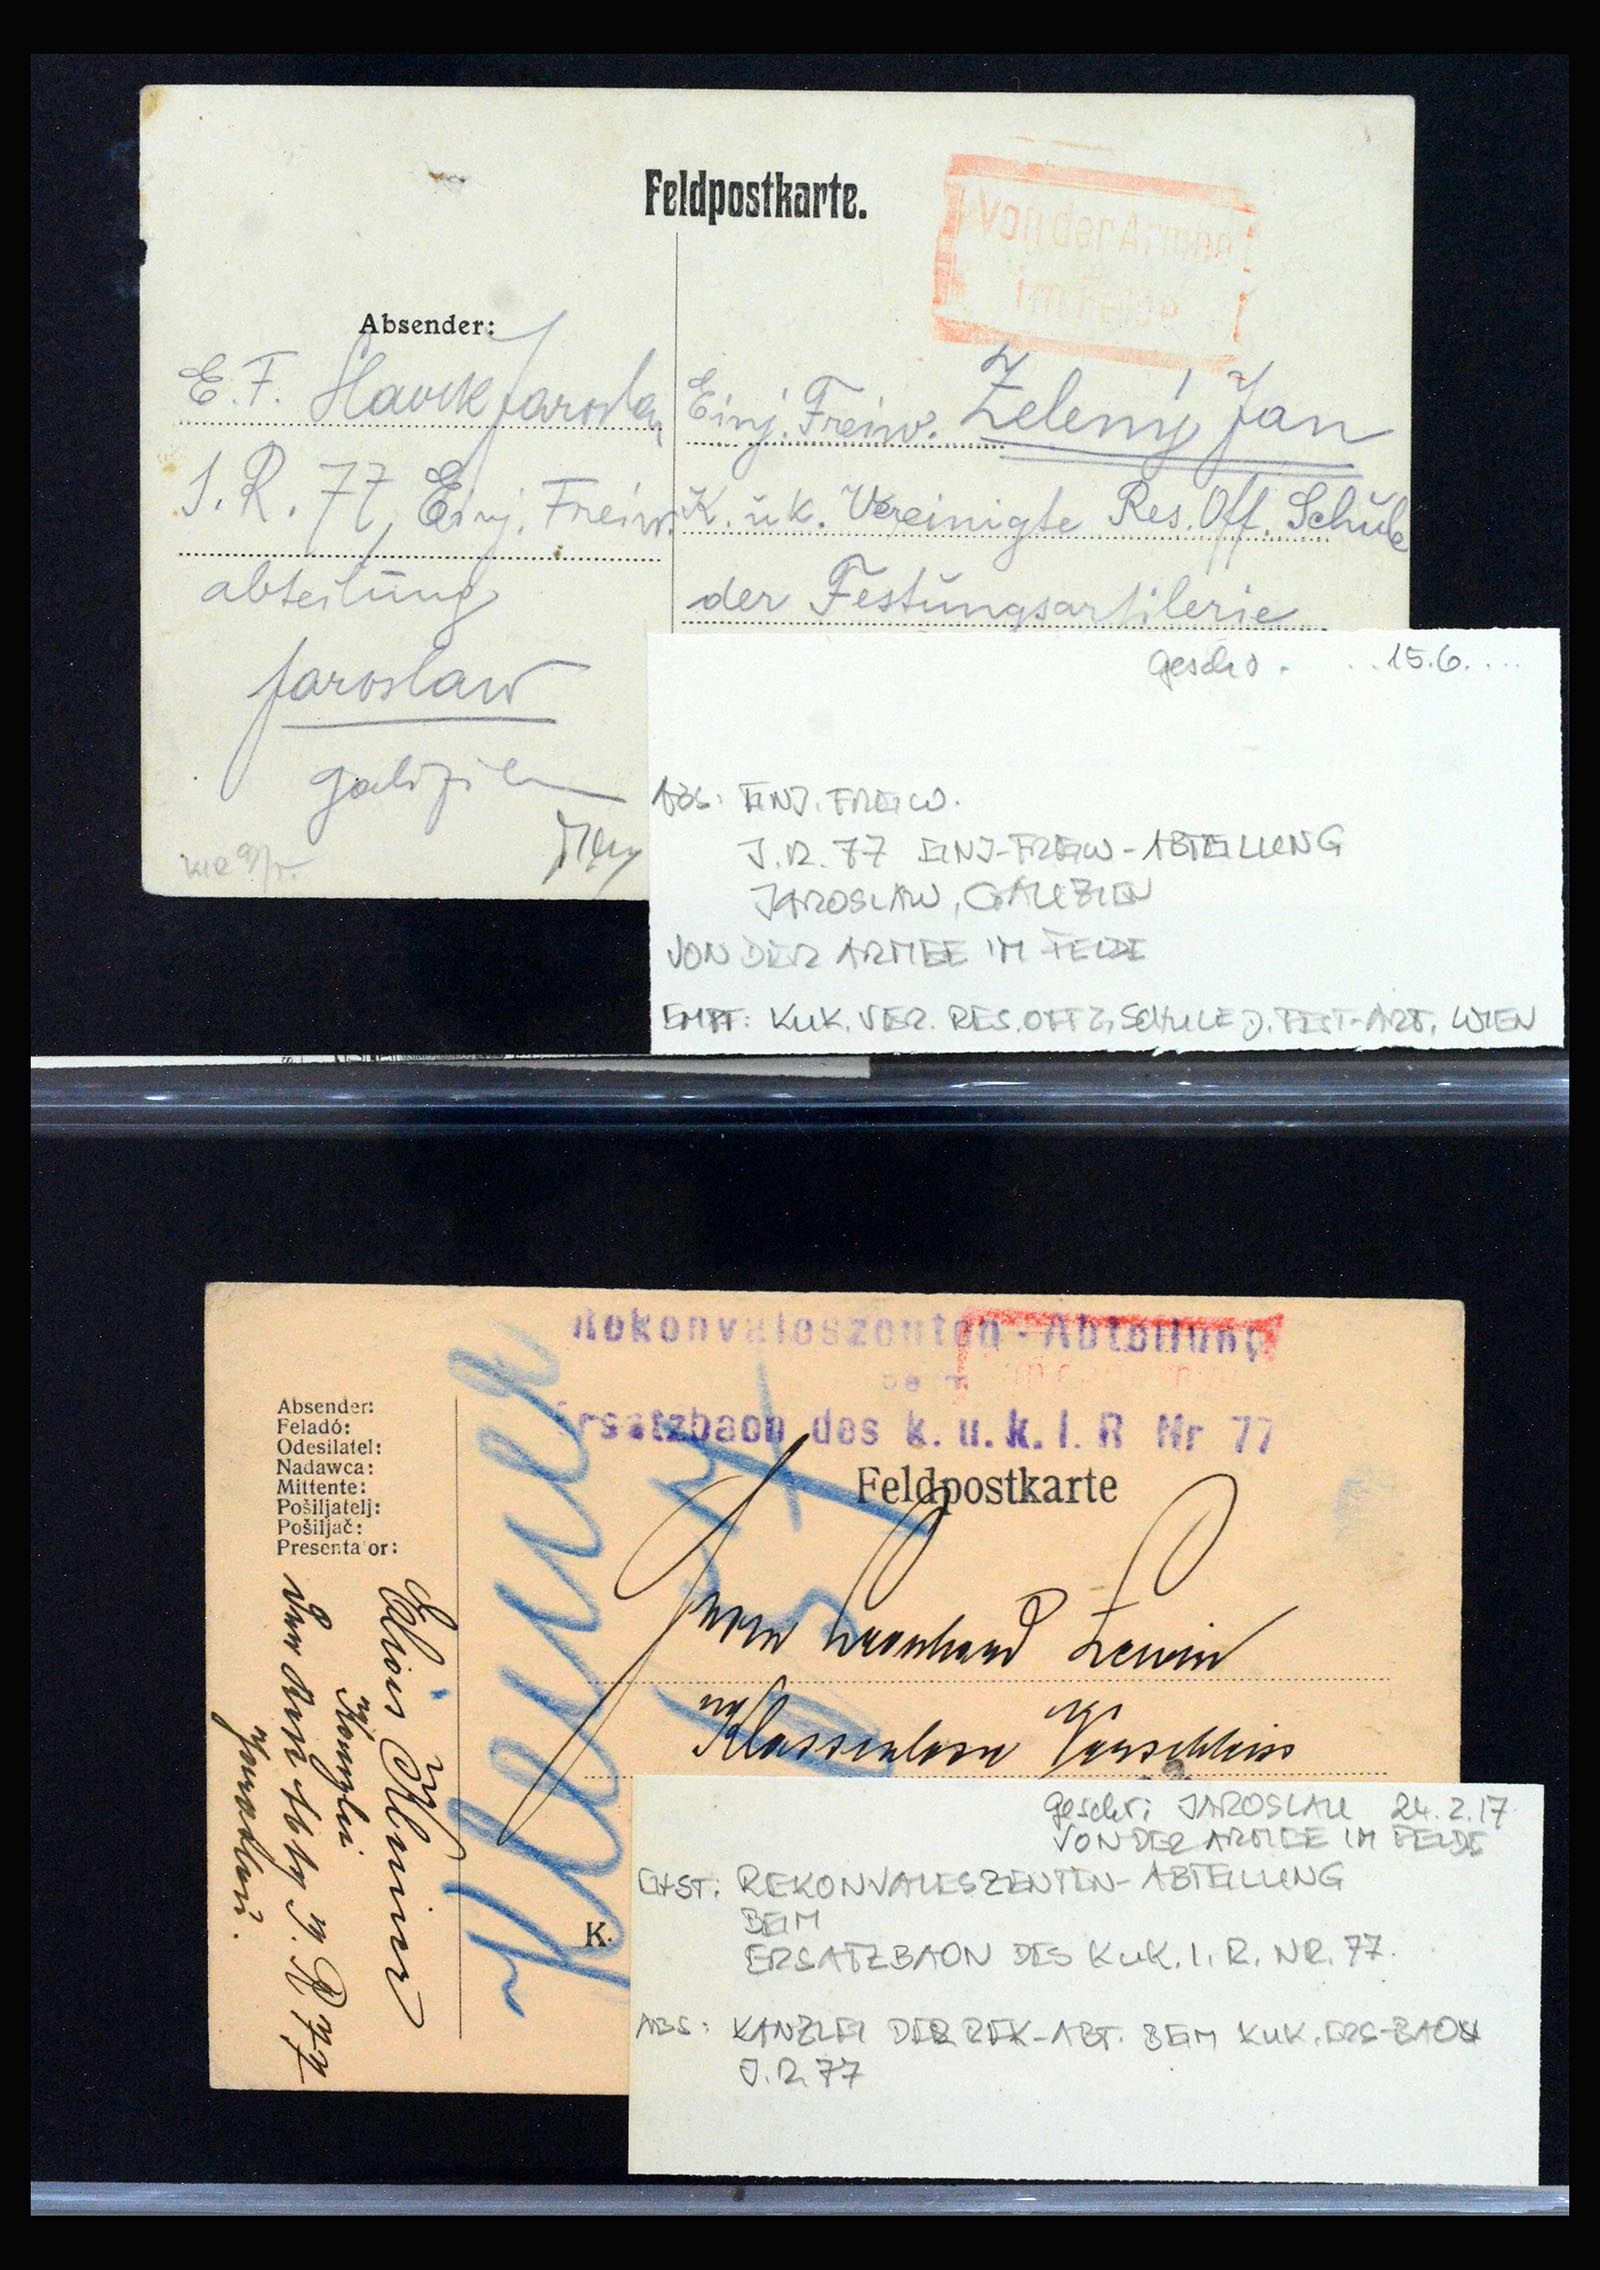 Feldpostkarte.
Von der Armee
im Felde
Absender:
E. F. Jaroslav
I. R. 77, Einj. Freiw.
abteilung
Jaroslaw
Galizien
Einj. Freiw. Zelený Jan
K. u. k. Vereinigte Res. Off. Schule
der Festungsartilerie
15.6.
ABS: EINJ. FREIW.
J.R. 77 EINJ-FREIW-ABTEILUNG
JAROSLAW, GALIZIEN
VON DER ARMEE IM FELDE
EMPF: KUK. VER. RES. OFFZ. SCHULE D. FEST-ART. WIEN
Rekonvaleszenten-Abteilung
beim
Ersatzbaon des k. u. k. I. R Nr 77
Feldpostkarte
Absender:
Feladó:
Odesilatel:
Nadawca:
Mittente:
Pošiljatelj:
Pošiljač:
Presentator:
Alois
Kanzlei
Jaroslau.
Herrn Leonhard Lewin
Klassenlose Verschleiss
K.
geschr: JAROSLAU 24.2.17
VON DER ARMEE IM FELDE
EHST: REKONVALESZENTEN-ABTEILUNG
BEIM
ERSATZBAON DES KUK. I. R. NR. 77.
ABS: KANZLEI DER REK-ABT. BEIM KUK. ERS-BAON
J.R. 77